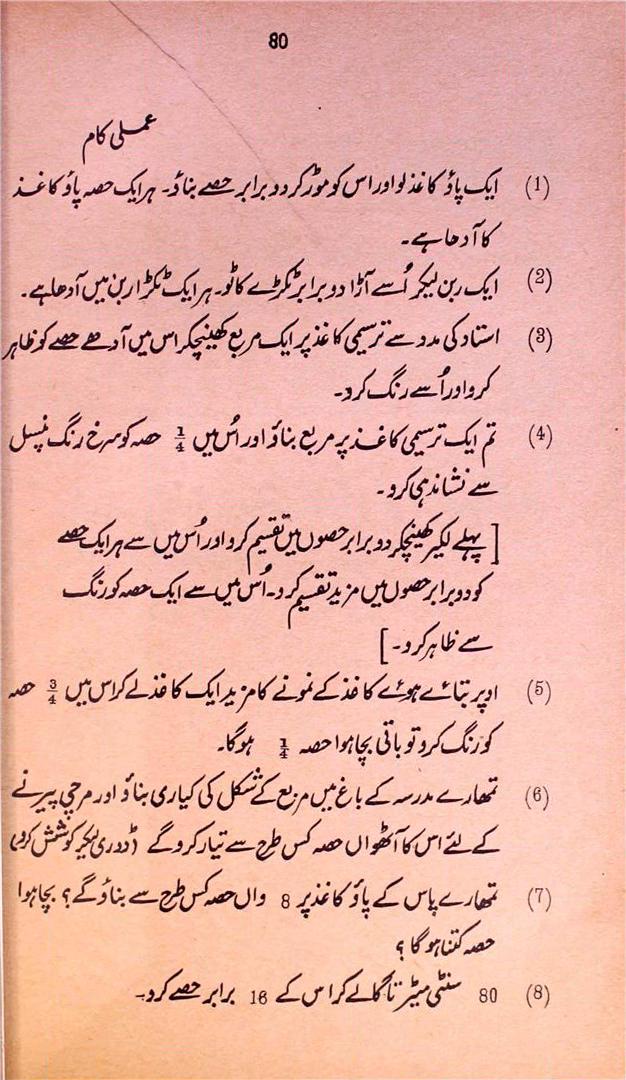 80
عملی کام
(1) ایک پاؤ کاغذ لو اور اس کو موڑ کر دو برابر حصے بناؤ۔ ہر ایک حصہ پاؤ کاغذ
کا آدھا ہے۔
(2) ایک ربن لیکر اُسے آڑا دو برابر ٹکڑے کاٹو۔ ہر ایک ٹکڑا ربن میں آدھا ہے۔
(3) استاد کی مدد سے ترسیمی کاغذ پر ایک مربع کھینچکر اس میں آدھے حصے کو ظاہر
کرو اور اُسے رنگ کرو۔
(4) تم ایک ترسیمی کاغذ پر مربع بناؤ اور اُس میں 1/4 حصہ کو سرخ رنگ پنسل
سے نشاندہی کرو۔
[ پہلے لکیر کھینچکر دو برابر حصوں میں تقسیم کرو اور اُس میں سے ہر ایک حصے
کو دو برابر حصوں میں مزید تقسیم کرو۔ اُس میں سے ایک حصہ کو رنگ
سے ظاہر کرو۔ ]
(5) اوپر بتائے ہوئے کاغذ کے نمونے کا مزید ایک کاغذ لے کر اس میں 3/4 حصہ
کو رنگ کرو تو باقی بچا ہوا حصہ 1/4 ہوگا۔
(6) تمھارے مدرسہ کے باغ میں مربع کے شکل کی کیاری بناؤ اور مرچی پیرنے
کے لئے اس کا آٹھواں حصہ کس طرح سے تیار کروگے (ڈوری لیکر کوشش کرو)
(7) تمھارے پاس کے پاؤ کاغذ پر 8 واں حصہ کس طرح سے بناؤ گے؟ بچا ہوا
حصہ کتنا ہوگا ؟
(8) 80 سنٹی میٹر تاگا لے کر اس کے 16 برابر حصے کرو۔